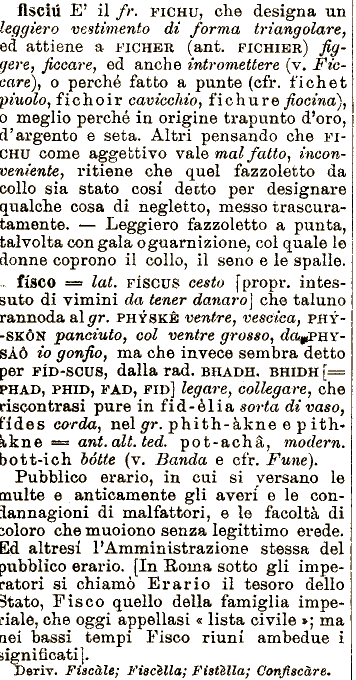 fisciú E' il fr. FICHU, che designa un
leggiero vestimento di forma triangolare,
ed attiene a FICHER (ant. FICHIER) fig-
gere, ficcare, ed anche intromettere (v. Fic-
care), o perché fatto a punte (cfr. fichet
piuolo, fichoir cavicchio, fichure fiocina),
o meglio perché in origine trapunto d'oro,
d'argento e seta. Altri pensando che FI-
CHU come aggettivo vale mal fatto, incon-
veniente, ritiene che quel fazzoletto da
collo sia stato cosí detto per designare
qualche cosa di negletto, messo trascura-
tamente. — Leggiero fazzoletto a punta,
talvolta con gala o guarnizione, col quale le
donne coprono il collo, il seno e le spalle.
físco = lat. FÍSCUS cesto [propr. intes-
suto di vimini da tener danaro] che taluno
rannoda al gr. PHÝSKÊ ventre, vescica, PHÝ-
-SKÔN panciuto, col ventre grosso, da PHY-
SÁÔ io gonfio, ma che invece sembra detto
per FÍD-SCUS, dalla rad. BHADH. BHIDH [=
PHAD, PHID, FAD, FID] legare, collegare, che
riscontrasi pure in fid-êlia sorta di vaso,
fídes corda, nel gr. phith-àkne e pith-
àkne = ant. alt. ted. pot-achâ, modern.
bott-ich bótte (v. Banda e cfr. Fune).
Pubblico erario, in cui si versano le
multe e anticamente gli averí e le con-
dannagioni di malfattori, e le facoltà di
coloro che muoiono senza legittimo erede.
Ed altresí l'Amministrazione stessa del
pubblico erario. [In Roma sotto gli impe-
ratori si chiamò Erario il tesoro dello
Stato, Fisco quello della famiglia impe-
riale, che oggi appellasi « lista civile »; ma
nei bassi tempi Fisco riuní ambedue i
significati].
Deriv. Fiscàle; Fiscèlla; Fistèlla; Confiscàre.